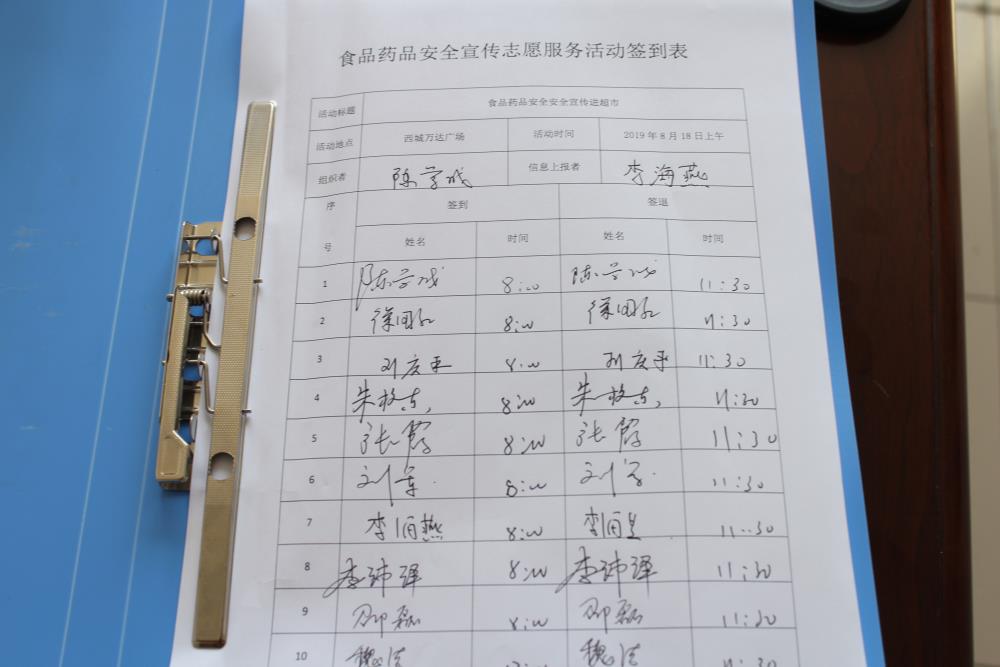 食品药品安全宣传志愿服务活动签到表
活动标题 食品药品安全安全宣传进超市
活动地点 西城万达广场 活动时间 2019年8月18日上午
组织者 陈学成 信息上报者 李海燕
序号 签到 签退
姓名 时间 姓名 时间
1 陈学成 8:00 陈学成 11:30
2 徐国红 8:00 徐国红 11:30
3 刘庆平 8:00 刘庆平 11:30
4 朱 8:00 朱 11:30
5 张霞 8:00 张霞 11:30
6 刘军 8:00 刘军 11:30
7 李海燕 8:00 李 11:30
8 李沛泽 8:00 李沛泽 11:30
9 邵磊 8:00 邵磊 11:30
10 魏洁 魏洁 11:30